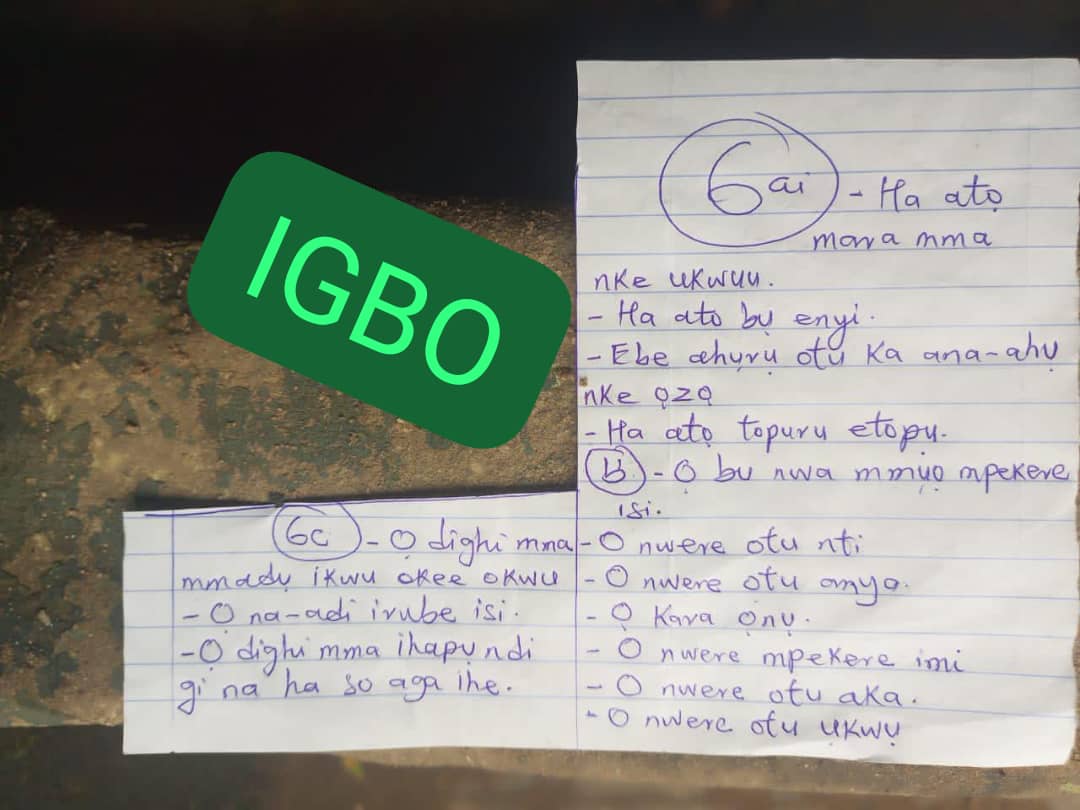 IGBO
6ai - Ha atọ
mara mma
nke ukwuu.
- Ha ato bụ enyi.
- Ebe ahụrụ otu ka ana-ahụ
nke ọzọ
- Ha atọ topuru etopụ.
B - Ọ bu nwa mmụọ mpekere
isi.
- O nwere otu nti
- O nwere otu anya.
- Ọ Kara ọnụ.
- O nwere mpekere imi
- O nwere otu aka.
- O nwere otu ụkwụ
6c - Ọ dighi mma
mmadụ ikwu okee okwu
- O na-adi irube isi.
- Ọ dighi mma ihapụ ndi
gi na ha so aga ihe.